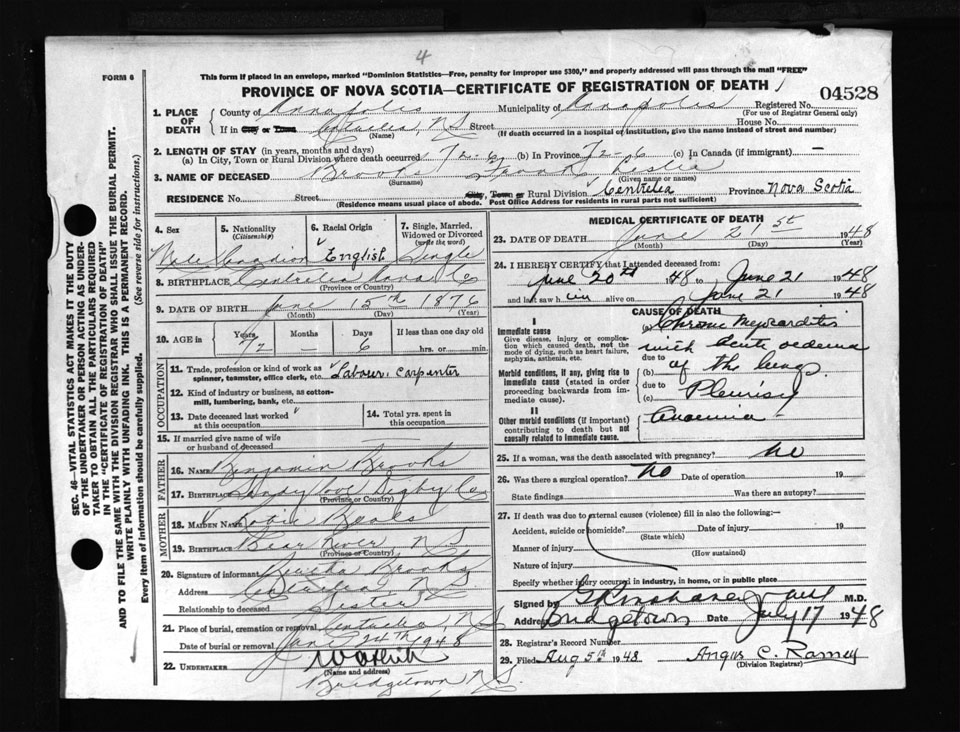 4
FORM 6
This form if placed in an envelope, marked "Dominion Statistics—Free, penalty for improper use $300," and properly addressed will pass through the mail "FREE"
PROVINCE OF NOVA SCOTIA—CERTIFICATE OF REGISTRATION OF DEATH
04528
1. PLACE OF DEATH
County of Annapolis Municipality of Annapolis Registered No.
(For use of Registrar General only)
If in City or Town Centrelea, N.S. Street House No.
(Name) (If death occurred in a hospital or institution, give the name instead of street and number)
2. LENGTH OF STAY (in years, months and days)
(a) In City, Town or Rural Division where death occurred 72-6 (b) In Province 72-6 (c) In Canada (if immigrant) —
3. NAME OF DECEASED Brooks Frank
(Surname) (Given name or names)
RESIDENCE No. Street City, Town or Rural Division Centrelea Province Nova Scotia
(Residence means usual place of abode. Post Office Address for residents in rural parts not sufficient)
4. Sex 5. Nationality (Citizenship) 6. Racial Origin 7. Single, Married, Widowed or Divorced (write the word)
Male Canadian English Single
8. BIRTHPLACE Centrelea Anna. Co
(Province or Country)
9. DATE OF BIRTH June 15th 1876
(Month) (Day) (Year)
10. AGE in Years Months Days If less than one day old
72 — 6 hrs. or min.
OCCUPATION
11. Trade, profession or kind of work as spinner, teamster, office clerk, etc. Labourer, carpenter
12. Kind of industry or business, as cotton-mill, lumbering, bank, etc.
13. Date deceased last worked at this occupation 14. Total yrs. spent in this occupation
15. If married give name of wife or husband of deceased
FATHER
16. NAME Benjamin Brooks
17. BIRTHPLACE Sandy Cove Digby Co
(Province or Country)
MOTHER
18. MAIDEN NAME Beals
19. BIRTHPLACE Bear River N S
(Province or Country)
20. Signature of informant Bertha Brooks
Address Centrelea N.S.
Relationship to deceased Sister
21. Place of burial, cremation or removal Centrelea, N.S.
Date of burial or removal June 24th 1948
22. UNDERTAKER
(Name and address)
Bridgetown N.S.
MEDICAL CERTIFICATE OF DEATH
23. DATE OF DEATH June 21st 1948
(Month) (Day) (Year)
24. I HEREBY CERTIFY that I attended deceased from:
June 20th 48 to June 21 1948
and last saw him alive on June 21 1948
CAUSE OF DEATH
I
Immediate cause
Give disease, injury or complication which caused death, not the mode of dying, such as heart failure, asphyxia, asthenia, etc.
(a) Chronic Myocarditis
with acute oedema
due to
Morbid conditions, if any, giving rise to immediate cause (stated in order proceeding backwards from immediate cause).
(b) of the lungs
due to
(c) Pleurisy
II
Other morbid conditions (if important) contributing to death but not causally related to immediate cause.
Anaemia
25. If a woman, was the death associated with pregnancy? no
26. Was there a surgical operation? no Date of operation 19
State findings Was there an autopsy?
27. If death was due to external causes (violence) fill in also the following:—
Accident, suicide or homicide? Date of injury 19
(State which)
Manner of injury
(How sustained)
Nature of injury
Specify whether injury occurred in industry, in home, or in public place
Signed by M.D.
Address Bridgetown Date July 17 1948
28. Registrar's Record Number
29. Filed Aug 5th 1948 Angus C. Ramey
(Division Registrar)
SEC. 46—VITAL STATISTICS ACT MAKES IT THE DUTY
OF THE UNDERTAKER OR PERSON ACTING AS UNDER-
TAKER TO OBTAIN ALL THE PARTICULARS REQUIRED
IN THE "CERTIFICATE OF REGISTRATION OF DEATH"
AND TO FILE THE SAME WITH THE DIVISION REGISTRAR WHO SHALL ISSUE THE BURIAL PERMIT.
WRITE PLAINLY WITH UNFADING INK. THIS IS A PERMANENT RECORD.
Every item of information should be carefully supplied. (See reverse side for instructions.)